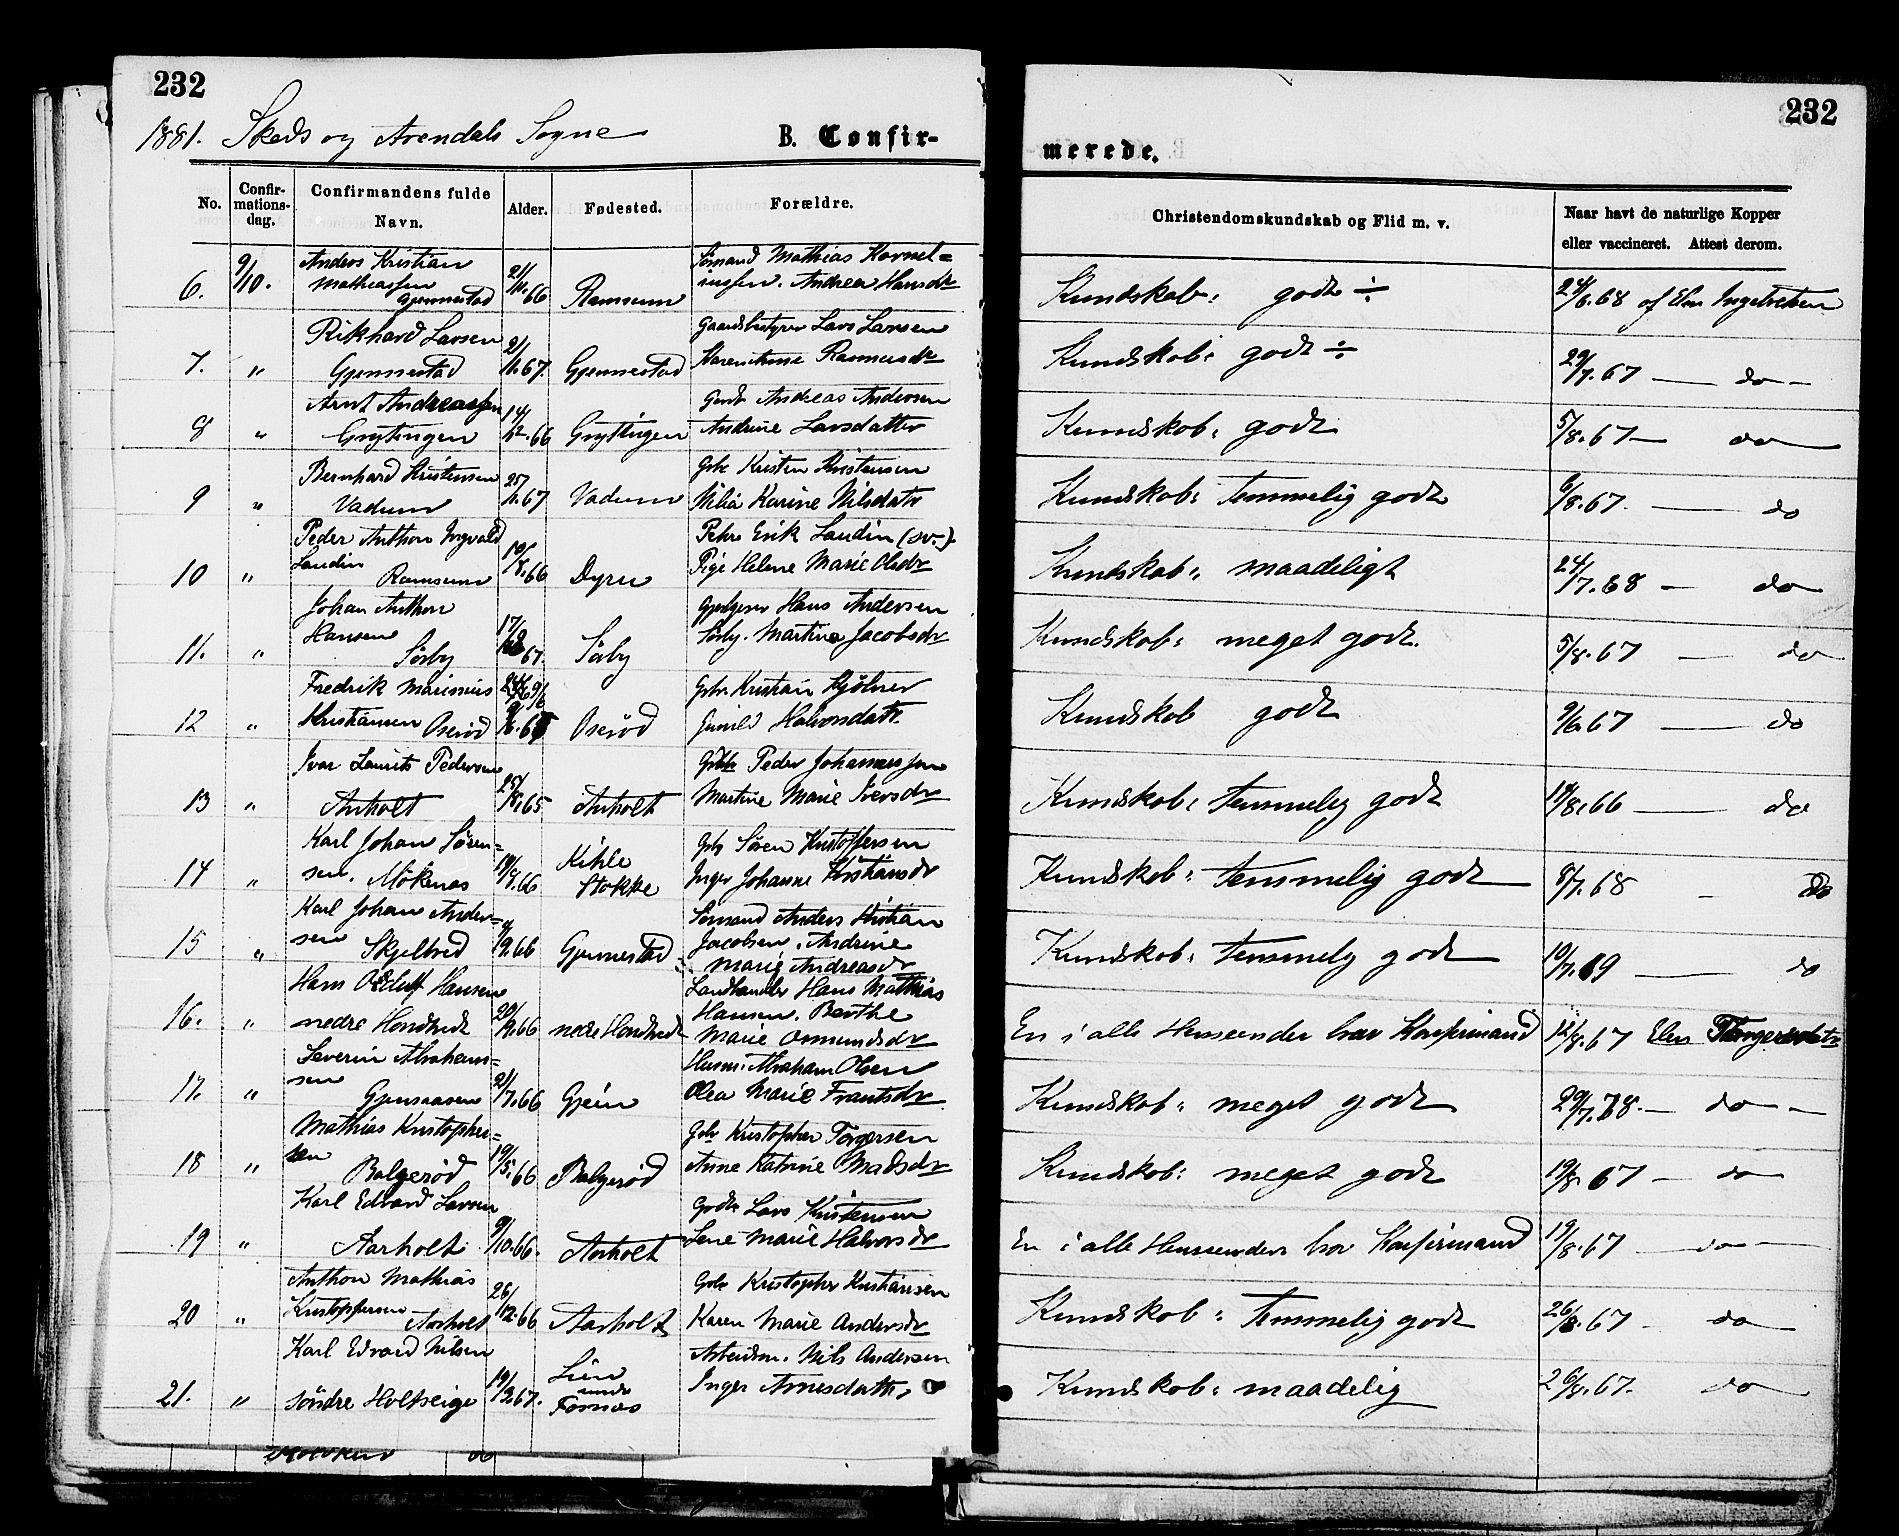 232
232
1881. Skeds og Arendals Sogne
B. Confir-
merede.
No.
Confir-mations-dag.
Confirmandens fulde Navn.
Alder.
Fødested.
Forældre.
Christendomskundskab og Flid m. v.
Naar havt de naturlige Kopper eller vaccineret. Attest derom.
Anders Kristian Sømand Mathias Kornel=
6. 9/10. Mathiassen Gjennestad 21/11.66 Ramsum iussen. Andrea Hansdtr Kundskab: godt ÷ 24/6.68 af Elen Ingebretsen
Rikhard Larsen Gaardbestyrer Lars Larsen
7. " Gjennestad 2/1.67. Gjennestad Karen Anne Rasmusdtr Kundskab: godt ÷ 29/7.67 — do —
Arnt Andreassen Gbr Andreas Andersen
8 " Grytingen 14/12.66 Gryttingen Andrine Larsdatter Kundskab: godt 5/8.67 — do
Bernhard Kristensen Gbr Kristen Kristensen
9 " Vadum 25/1.67 Vadum Milia Karine Nilsdatr Kundskab: temmelig godt 6/8.67. — do
Peder Anthon Ingvald Erik Landin (sv.).
10 " Landin Ramsum 19/8.66 Dyrsø Pige Helene Marie Olsdtr Kundskab: maadeligt 24/7.68 — do
Johan Anthon Hans Andersen
11. " Hansen Sørby 17/ 67. Sørby Sørby. Martine Jacobsdtr Kundskab: meget godt. 5/8.67 — do
Fredrik Marinius Gbr Kristian Hjölner
12 " Kristiansen Oserød Oserød Gunild Halvorsdatr. Kundskab godt 9/6.67 — do
Ivar Laurits Pedersen Gbr Peder Johannessen
13 " Anholt 25/8.65 Anholt Martine Marie Iversdtr Kundskab: temmelig godt 19/8.66 — do
Karl Johan Søren= Gbr Søren Kristoffersen
14 " sen. Mökenas 19/9.66 Kihle Stokke Inger Johanne Kristiansdr Kundskab: temmelig godt 8/7.68 - do
Karl Johan Ander= Sømand Anders Kristian
15 " sen Skjelbred 9.66 Gjennestad Jacobsen, Andrine Marie Andreasdr Kundskab: temmelig godt 10/7.69 — do
Hans Hansen Landhandler Hans Mathias
16. " nedre Hondtveit 20/9.66 nedre Hondtveit Hansen. Berthe Marie Osmundsdr En i alle Henseender brav Konfirmand 12/8.67 Elen
Severin Abraham= Husm: Abraham Olsen
17. " sen 21/7.66 Gjein Olea Marie Frantsdtr Kundskab: meget godt 29/7.78. — do —
Mathias Kristopher= Gbr Kristopher Torgersen
18 " sen Bolgerød 19/5.66 Bolgerød Anne Katrine Madsdtr Kundskab: meget godt 19/8.67 — do
Karl Edvard Larsen Gbr Lars Kristensen
19 " Aarholt 9/10.66. Aarholt Lene Marie Halvorsdr En i alle Henseender bra Konfirmand 19/8.67 — do —
Anthon Mathias Gbr Kristopher Kristiansen
20 " Kristoffersen Aarholt 26/12.66 Aarholt Karen Marie Andersdr Kundskab: temmelig godt 26/8.67 — do
Karl Edvard Nilsen Arbeidsm. Nils Andersen
21. " søndre Holtseige 19/2.67. Lien Inger Arnesdatter Kundskab: maadelig 26/8.67. do